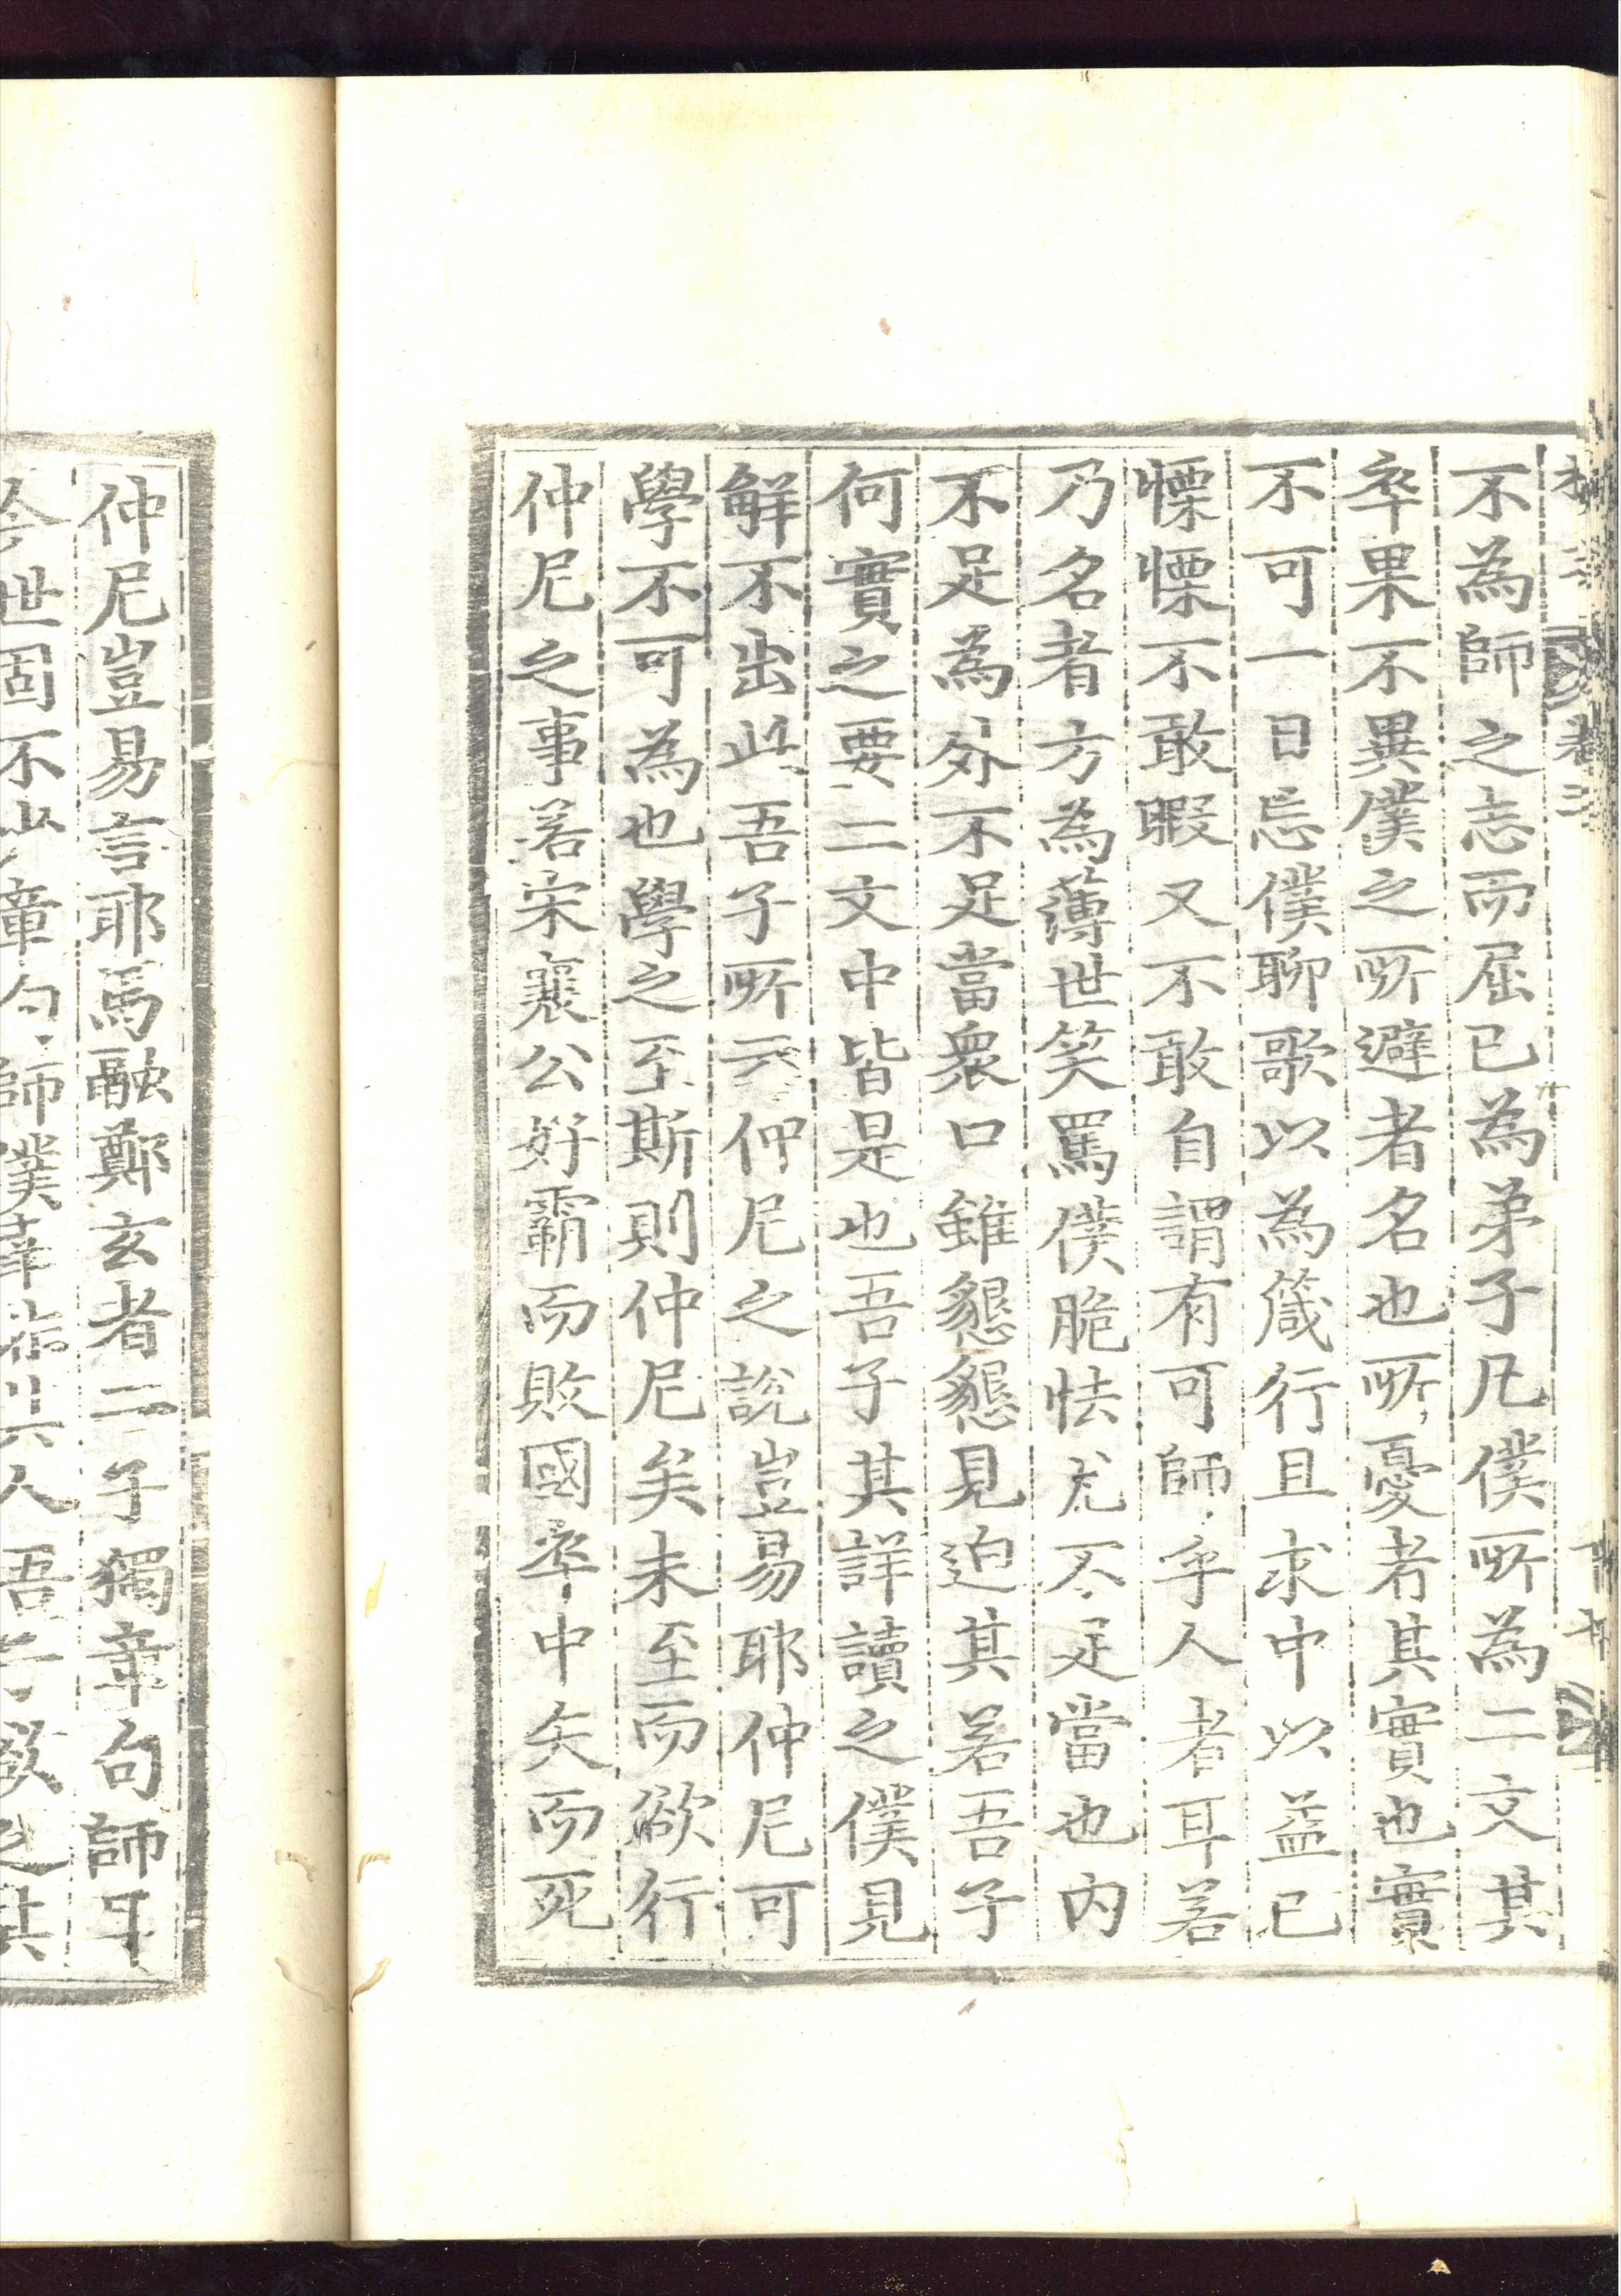 卷三
不為師之志而屈已為弟子凡僕所為二文其
卒果不異僕之所避者名也所憂者其實也實
不可一日忘僕聊歌以為箴行且求中以益已
慄慄不敢暇又不敢自謂有可師乎人者耳若
乃名者方為薄世笑罵僕脆怯尤不足當也内
不足為外不足當衆口雖懇懇見迫其若吾子
何實之要二文中皆是也吾子其詳讀之僕見
解不出此吾子所云仲尼之說豈易耶仲尼可
學不可為也學之至斯則仲尼矣未至而欲行
仲尼之事若宋襄公好霸而敗國卒中矢而死
仲尼豈易言耶馬融鄭玄者二子獨章句師耳
今世固不少章句師僕幸非其人吾子欲之其